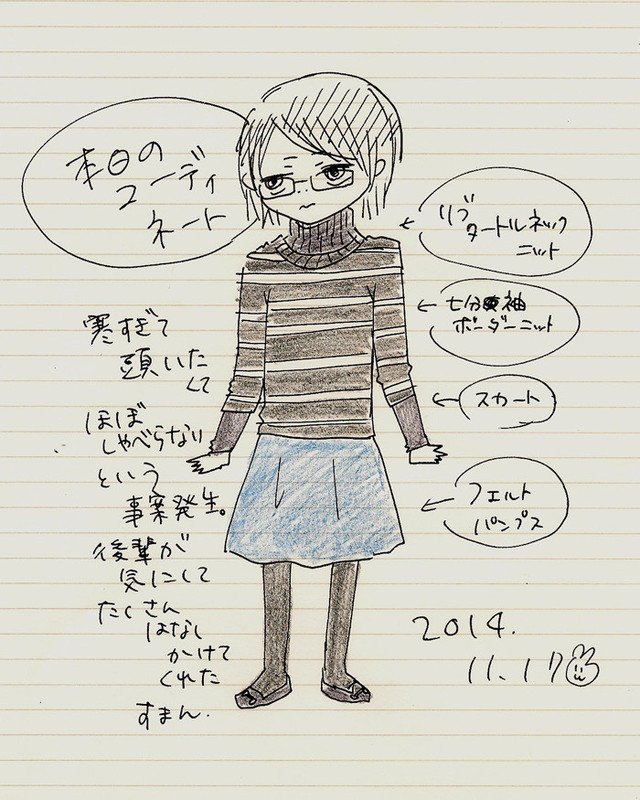 本日の
コーディ
ネート
リブ
タートルネック
ニット
七分袖
ボーダーニット
スカート
フェルト
パンプス
寒すぎて
頭いた
くて
ほぼ
しゃべらない
という
事案発生。
後輩が
気にして
たくさん
はなし
かけて
くれた
すまん.
2014.
11.17